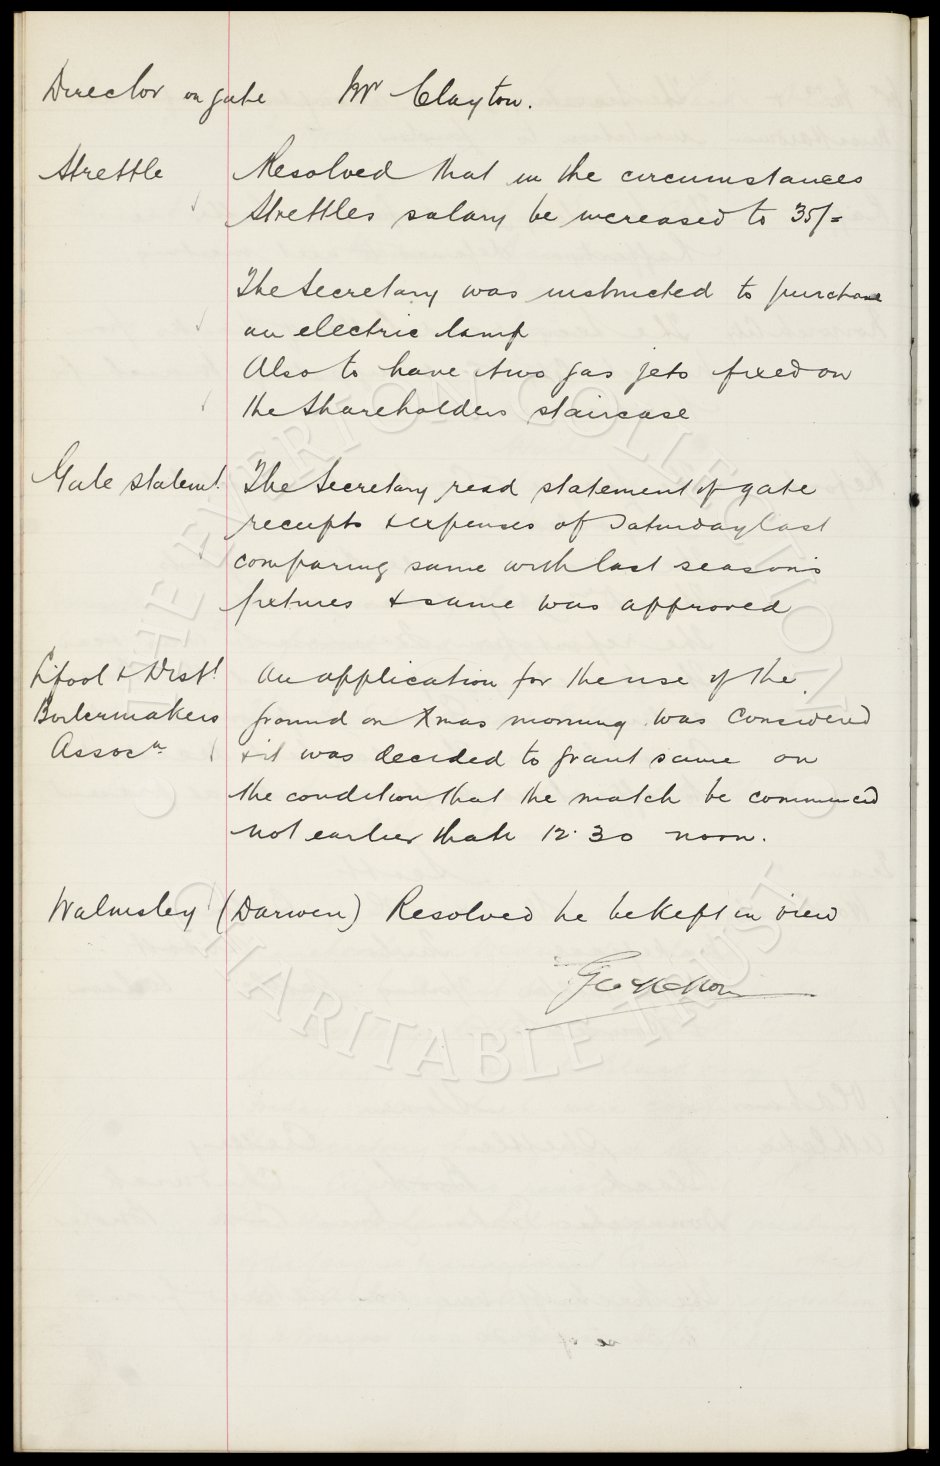 Director on gate Mr Clayton.
Strettle Resolved that in the circumstances
Strettles salary be increased to 35/=
The Secretary was instructed to purchase
an electric lamp
Also to have two gas jets fixed on
the Shareholders staircase
Gate statemt. The Secretary read statement of gate
receipts & expenses of Saturday last
comparing same with last season's
fixtures & same was approved
L'pool & Dist. An application for the use of the
Boilermakers ground on Xmas morning was considered
Assocn & it was decided to grant same on
the condition that the match be commenced
not earlier than 12.30 noon.
Walmsley (Darwen) Resolved he be kept in view
THE EVERTON COLLECTION
CHARITABLE TRUST